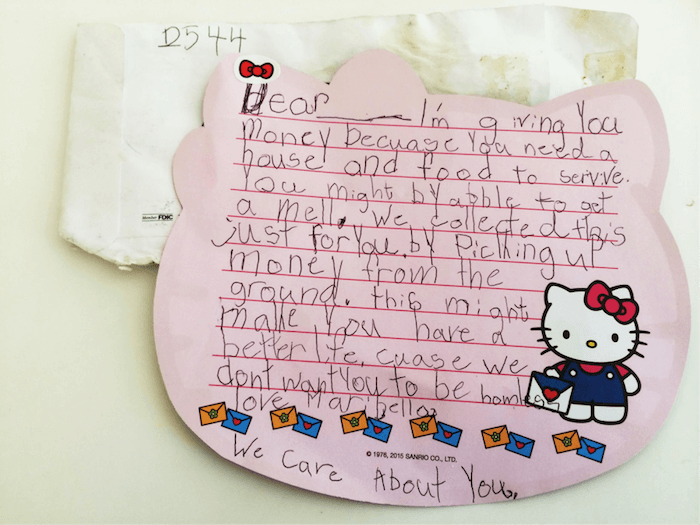 2544
Dear I'm giving You
Money Decuase You need a
house and food to servive.
You might by abble to get
a mell. We collected this
just for You. by Picking up
money from the
ground. this might
make You have a
better life, cuase we
dont want You to be homless
love Maribella
We Care About You,
© 1976, 2015 SANRIO CO., LTD.
Member FDIC